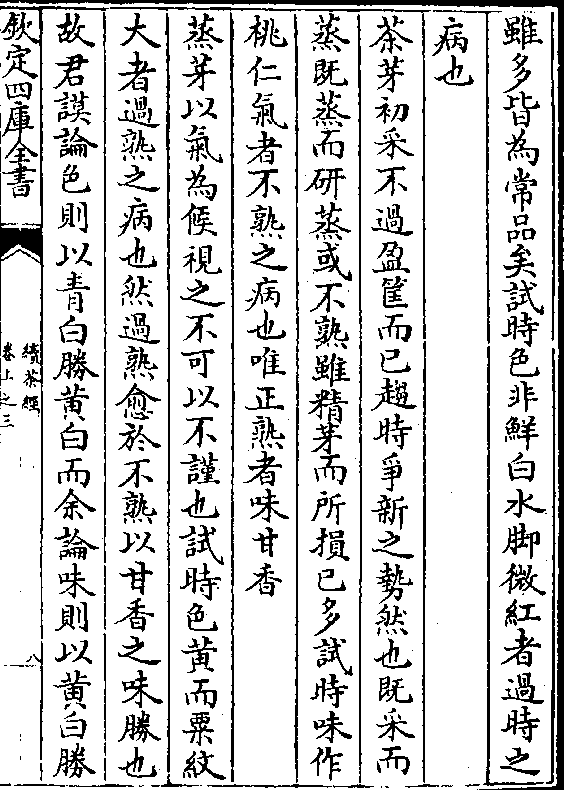 雖多皆為常品矣試時色非鮮白水脚微紅者過時之
病也
茶芽初采不過盈筐而已趨時爭新之勢然也既采而
蒸既蒸而研蒸或不熟雖精芽而所損已多試時味作
桃仁氣者不熟之病也唯正熟者味甘香
蒸芽以氣為候視之不可以不謹也試時色黄而粟紋
大者過熟之病也然過熟愈於不熟以甘香之味勝也
故君謨論色則以青白勝黄白而余論味則以黄白勝
欽定四庫全書
續茶經
卷上之三
八